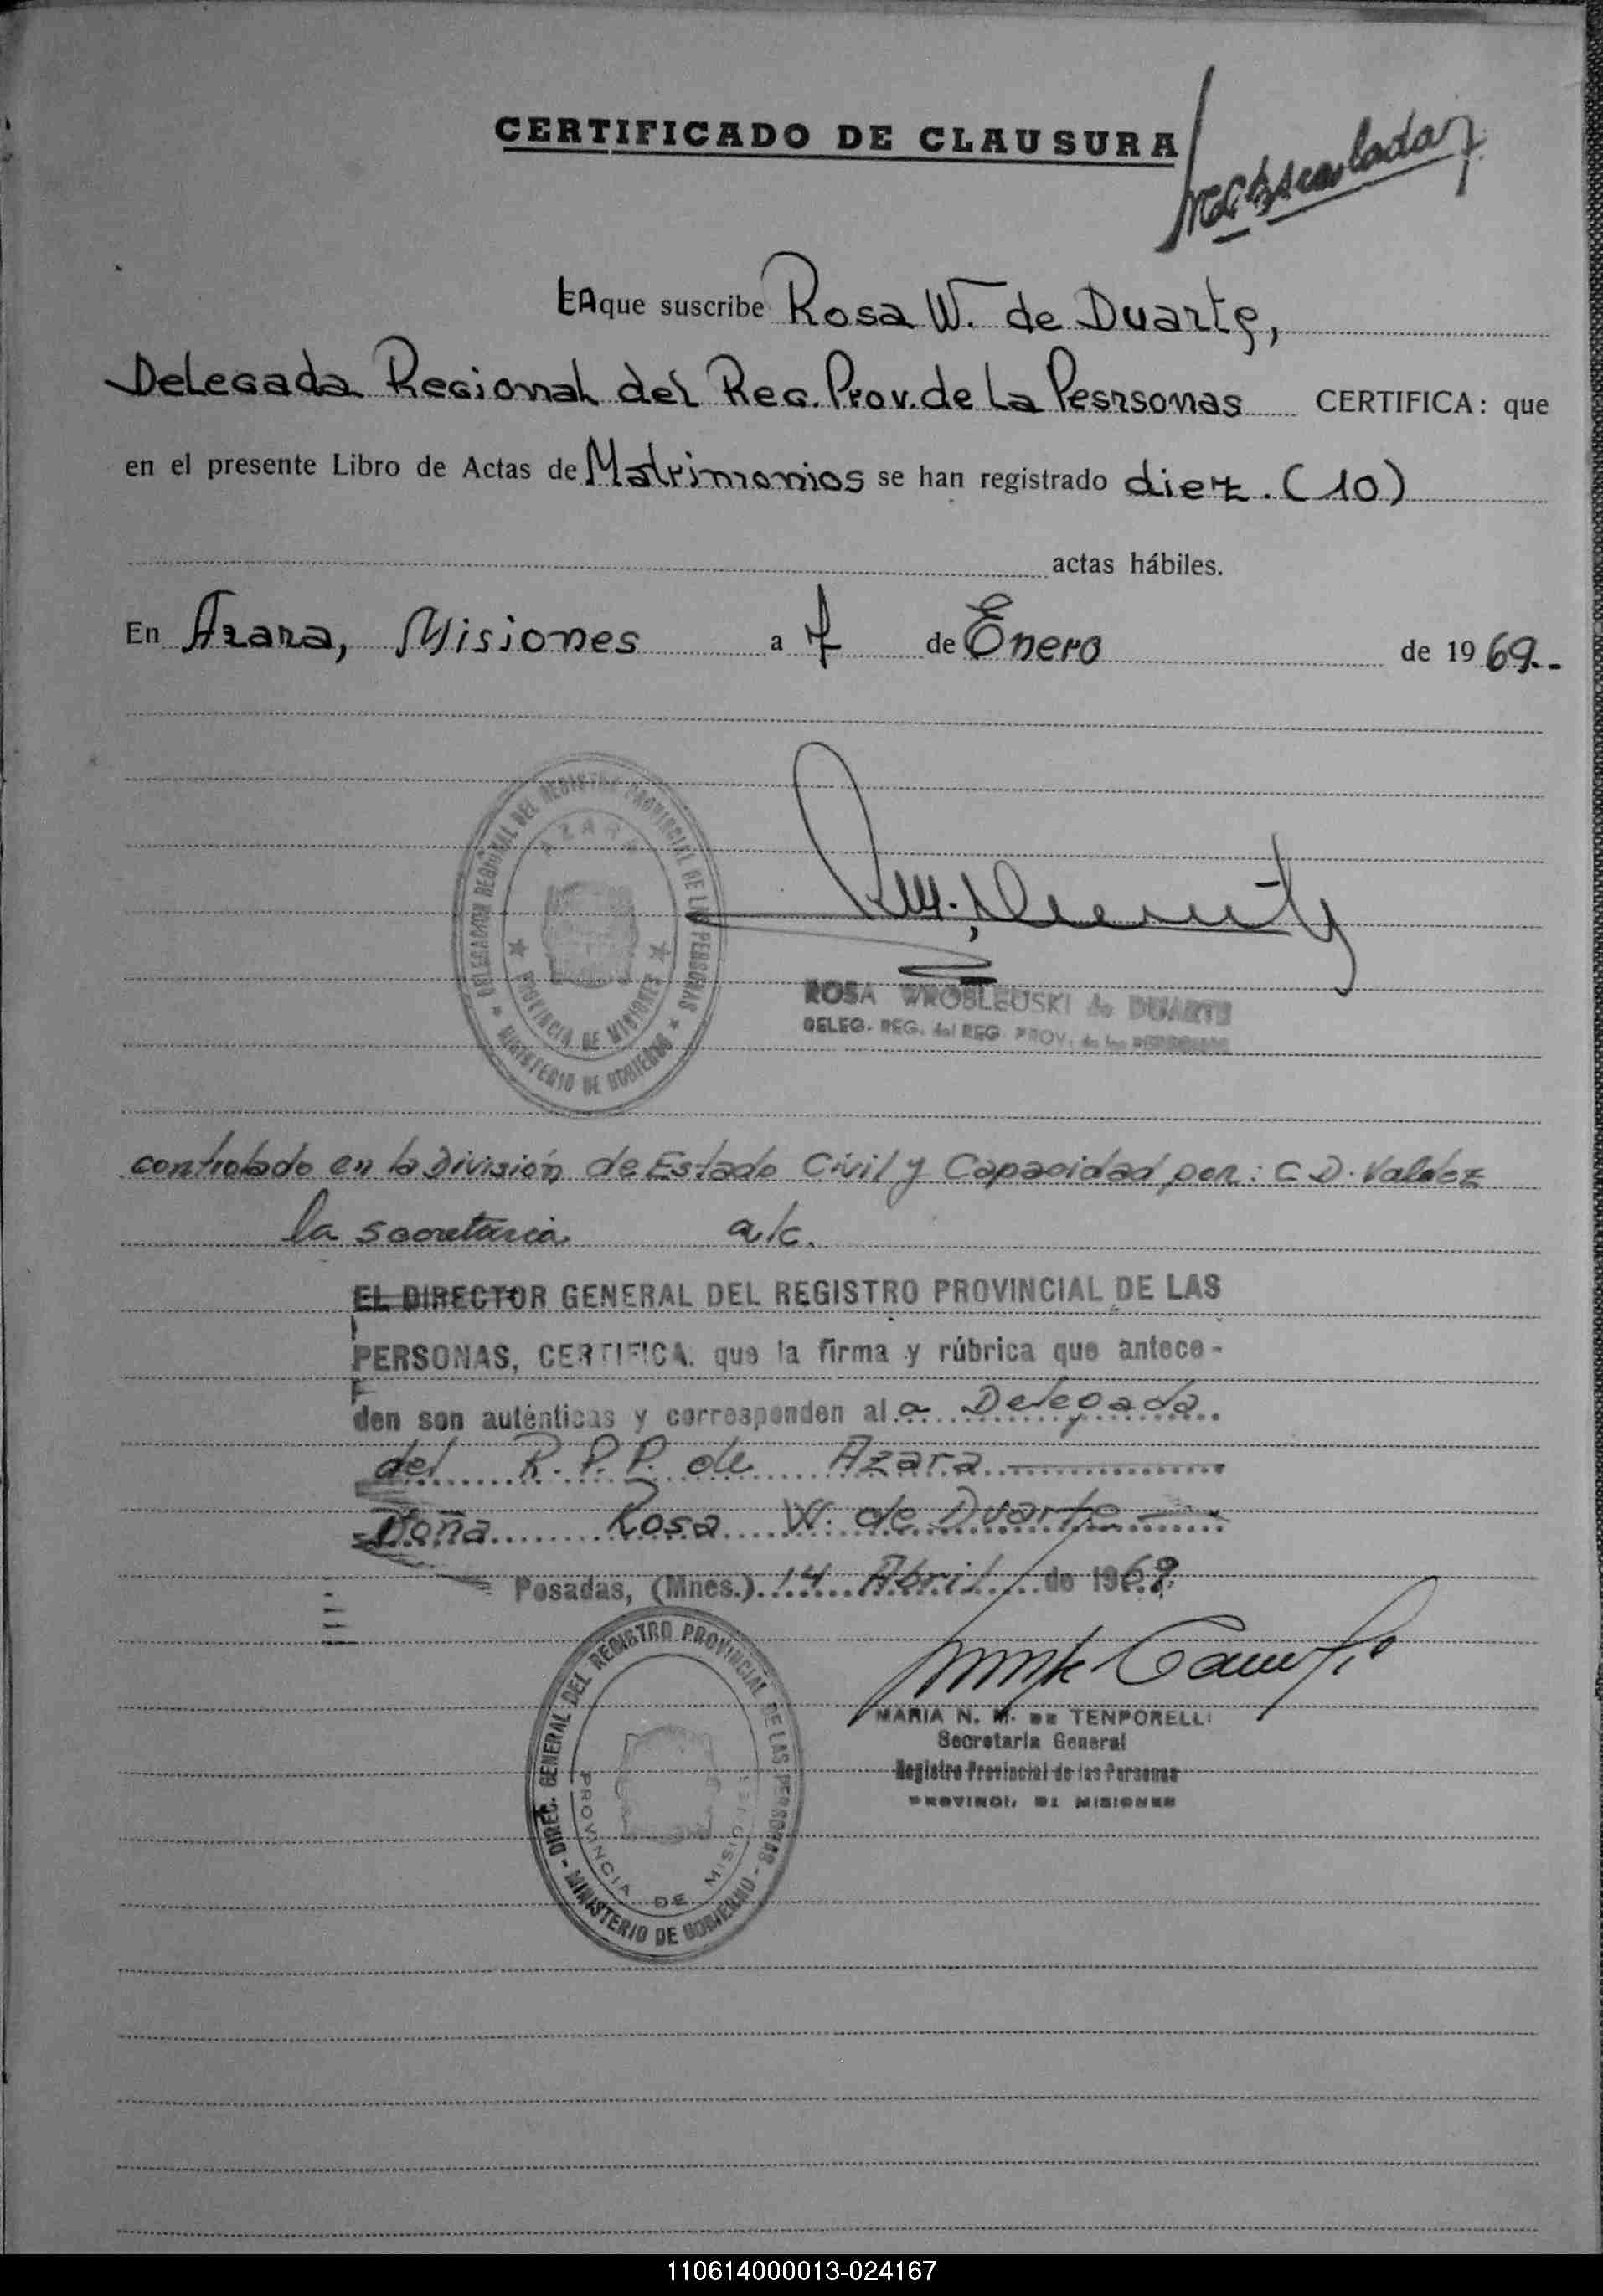 CERTIFICADO DE CLAUSURA
LA que suscribe Rosa W. de Duarte,
Delegada Regional del Reg. Prov. de La Pesrsonas CERTIFICA: que
en el presente Libro de Actas de Matrimonios se han registrado diez. (10)
actas hábiles.
En Azara, Misiones a 7 de Enero de 1969.-
DELEGACION REGIONAL DEL REGISTRO PROVINCIAL DE LAS PERSONAS
AZARA
PROVINCIA DE MISIONES
MINISTERIO DE GOBIERNO
ROSA WROBLEUSKI de DUARTE
DELEG. REG. del REG. PROV. de las PERSONAS
controlado en la División de Estado Civil y Capacidad por: C D. Valdez
la secretaria a/c.
EL DIRECTOR GENERAL DEL REGISTRO PROVINCIAL DE LAS
PERSONAS, CERTIFICA. que la firma y rúbrica que antece-
den son auténticas y corresponden al a Delegada
del R. P. P. de Azara
Doña Rosa W. de Duarte
Posadas, (Mnes.) 14 Abril de 1969
DIREC. GENERAL DEL REGISTRO PROVINCIAL DE LAS PERSONAS - MINISTERIO DE GOBIERNO -
PROVINCIA DE MISIONES
MARIA N. M. DE TENPORELLI
Secretaria General
Registro Provincial de las Personas
PROVINCI. DE MISIONES
110614000013-024167